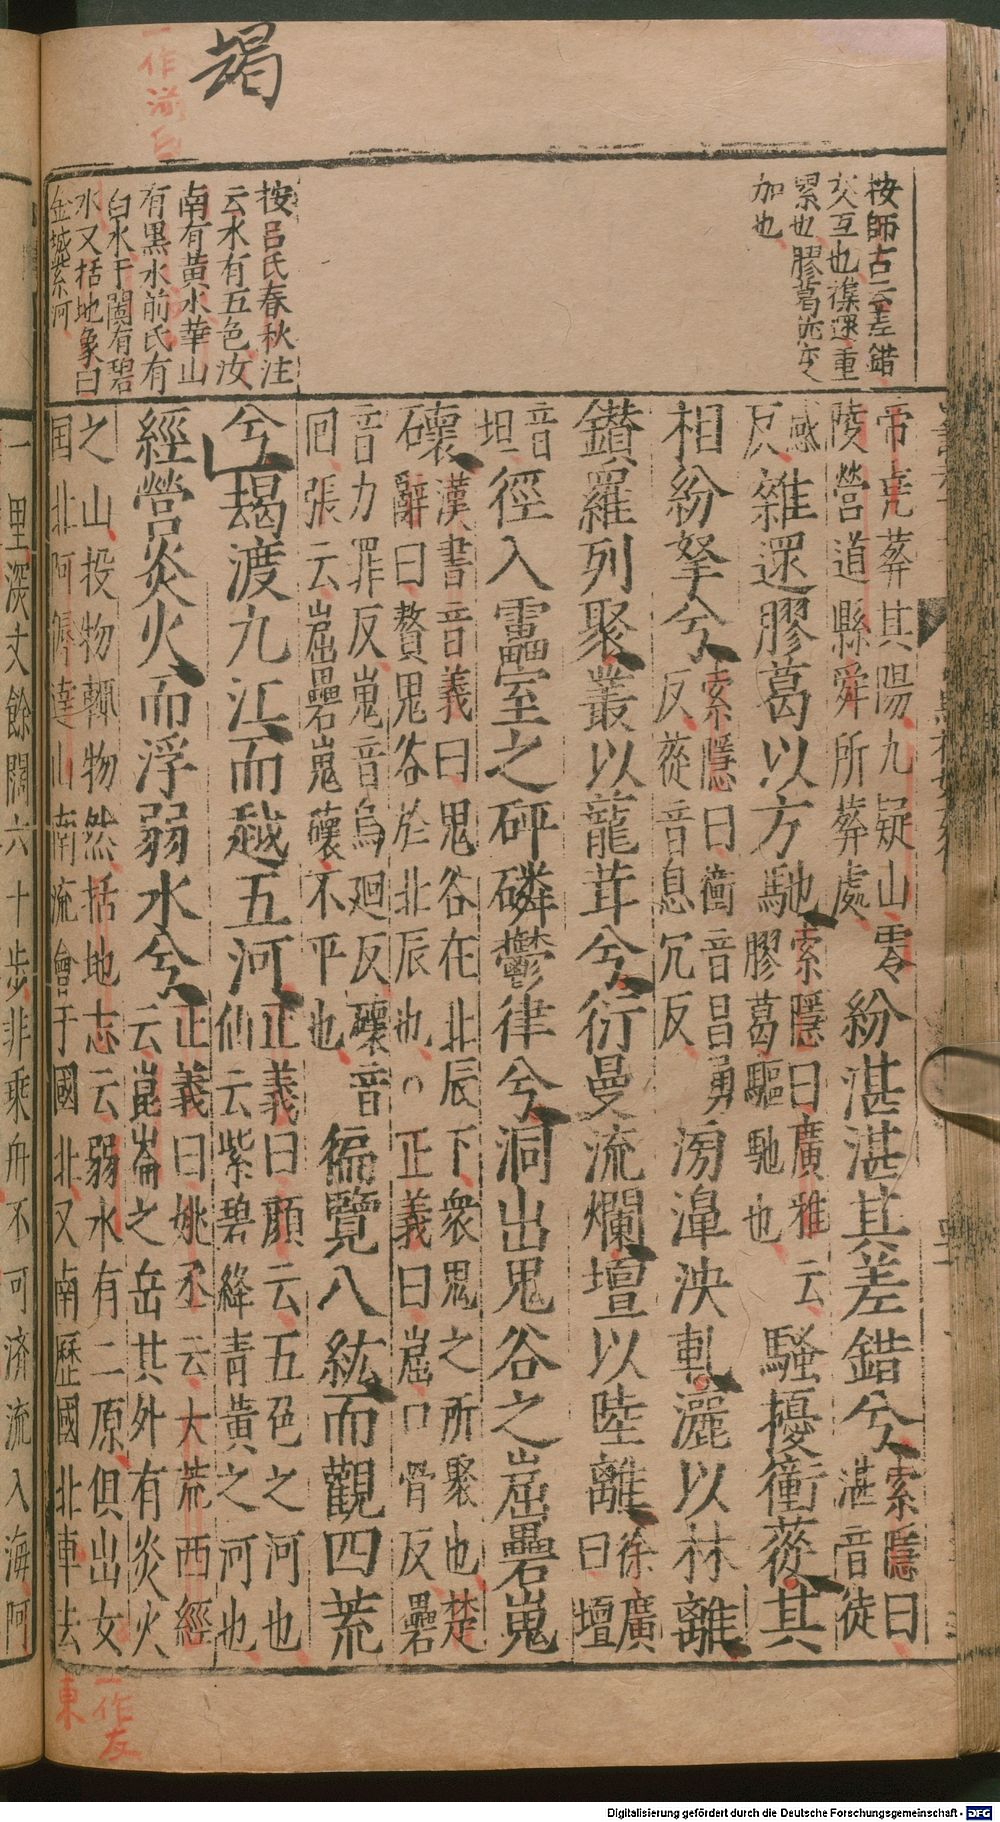 朅
一作
按師古云差錯
交互也雜遝重
累也膠葛猶交
加也
按呂氏春秋注
云水有五色汝
南有黃水華山
有黑水前氏有
白水于闐有碧
水又括地象曰
金城紫河
帝堯葬其陽九疑山零
陵營道縣舜所葬處
紛湛湛其差錯兮
索隱曰
湛音徒
感
反
雜遝膠葛以方馳
索隱曰廣雅云
膠葛驅馳也
騷擾衝蓯其
相紛挐兮
索隱曰衝音昌勇
反蓯音息冗反
滂濞泱軋灑以林離
鑽羅列聚叢以蘢茸兮衍曼流爛壇以陸離
徐廣
曰壇
音
坦
徑入靁室之砰磷鬱律兮洞出鬼谷之崫礨嵬
礰
漢書音義曰鬼谷在北辰下衆鬼之所聚也楚
辭曰贅鬼谷於北辰也○正義曰崫口骨反礨
音力罪反嵬音烏廻反礰音
回張云崫礨嵬礰不平也
徧覽八紘而觀四荒
兮朅渡九江而越五河
正義曰顏云五色之河也
仙云紫碧絳青黃之河也
經營炎火而浮弱水兮
正義曰姚丞云大荒西經
云崑崙之岳其外有炎火
之山投物輒物然括地志云弱水有二原俱出女
国北阿傉達山南流會于國北又南歷國北車去
一里深丈餘闊六十步非乘舟不可済流入海阿
一作友
東
Digitalisierung gefördert durch die Deutsche Forschungsgemeinschaft - DFG